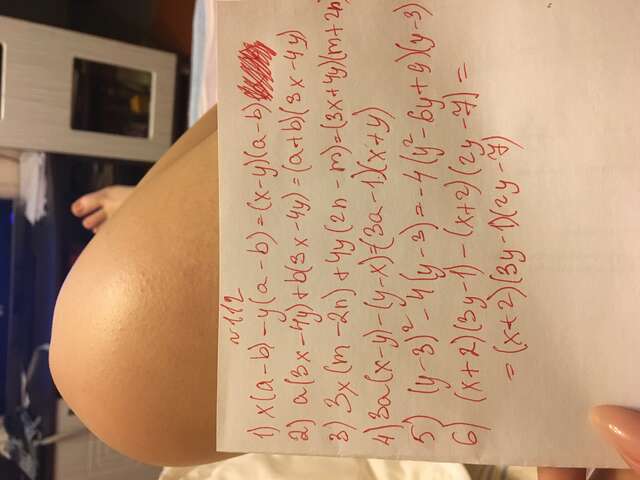 n 112
1) x(a-b)-y(a-b)=(x-y)(a-b)
2) a(3x-4y)+b(3x-4y)=(a+b)(3x-4y)
3) 3x(m-2n)+4y(2n-m)=(3x+4y)(m+2n)
4) 3a(x-y)-(y-x)=(3a-1)(x+y)
5) (y-3)²-4(y-3)=-4(y²-6y+9)(y-3)
6) (x+2)(3y-1)-(x+2)(2y-7)=
=(x+2)(3y-1)(2y-7)